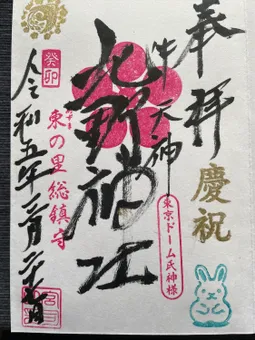 奉拝
慶祝
牛天神
東京ドーム氏神様
北野神社
癸卯
東の里総鎮守
令和五年